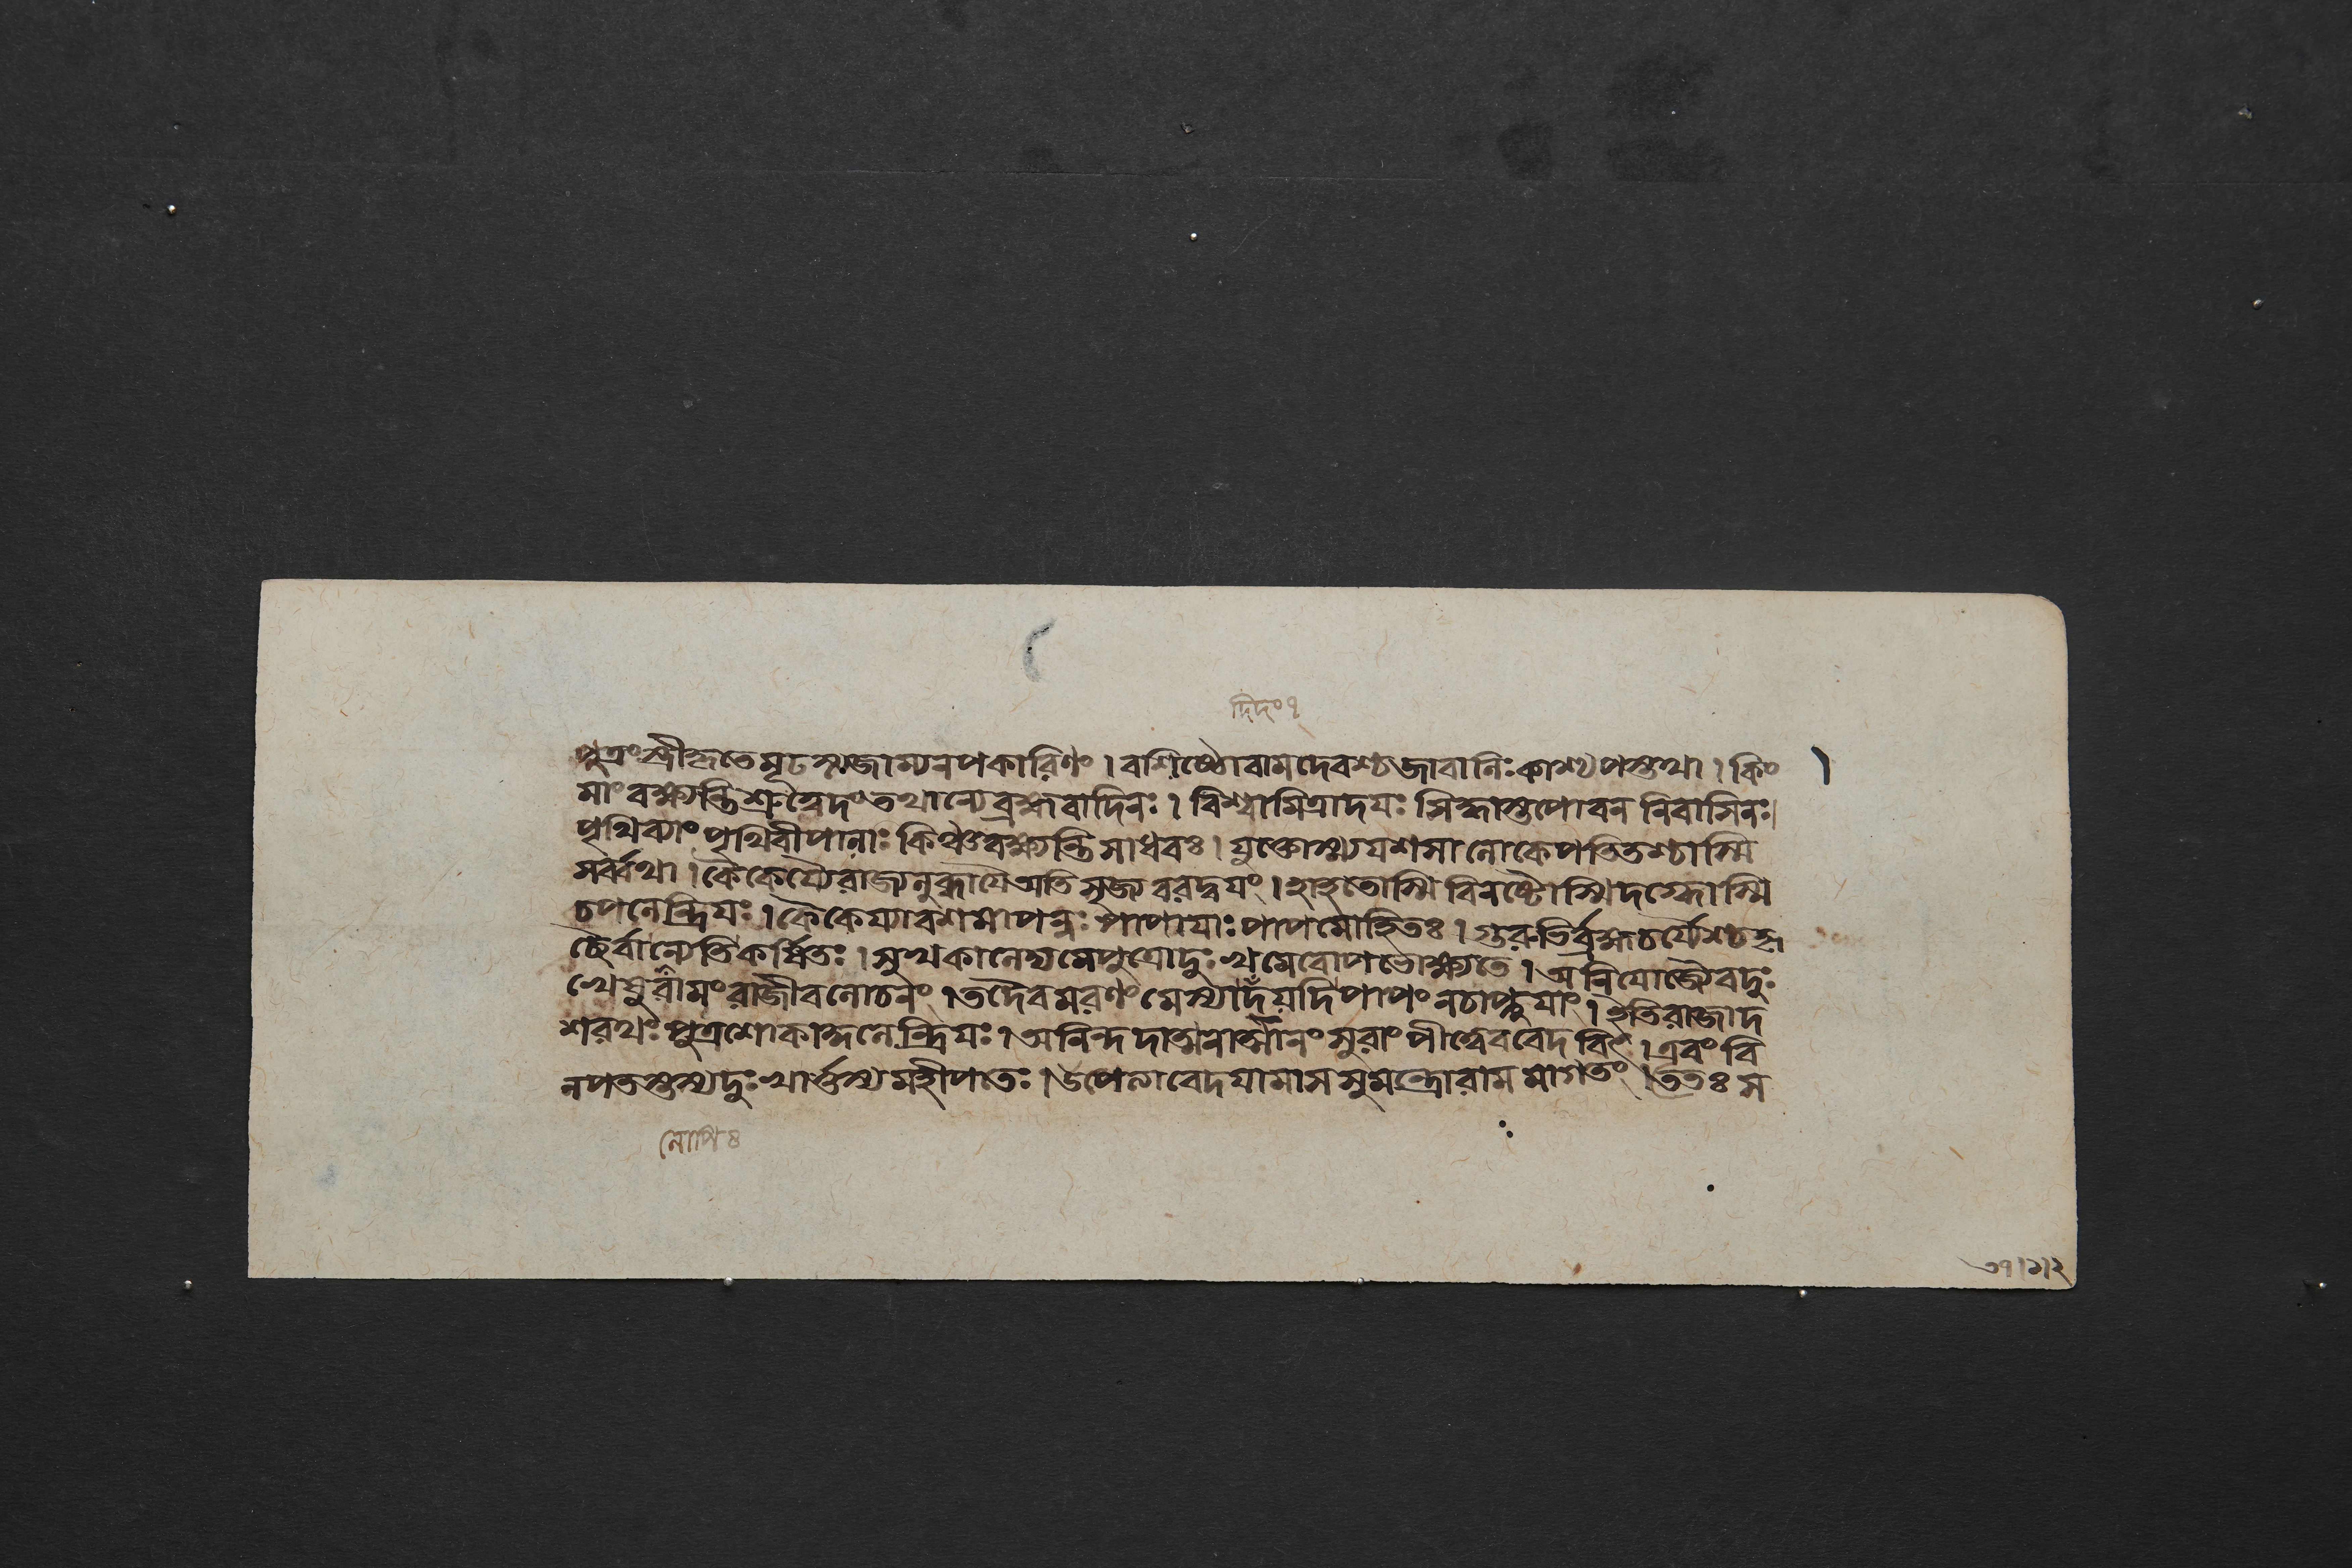 দিদং ৭
পুত্রং স্ত্রীকৃতে মূঢস্ত্যজাম্যনপকারিণং । বশিষ্ঠো বামদেবশ্চ জাবালিঃ কাশ্যপস্তথা । কিং
মাং বক্ষ্যন্তি শ্রুত্বেদং তথান্যে ব্রহ্মবাদিনঃ । বিশ্বামিত্রাদযঃ সিদ্ধাস্তপোবন নিবাসিনঃ।
পৃথিব্যাং পৃথিবীপালাঃ কিঞ্চ বক্ষ্যন্তি সাধবঃ । যুক্তোস্ম্যযশসা লোকে পতিতশ্চাস্মি
সর্ব্বথা । কৈকেয্যৈ রাজ্যলুব্ধাযৈ অতি সৃজ্য বরদ্বযং । হা হতোস্মি বিনষ্টোস্মি দগ্ধোস্মি
চপলেন্দ্রিযঃ । কৈকেয্যা বশমাপন্নঃ পাপাযাঃ পাপমোহিতঃ । গুরুভির্ব্রহ্মচর্য্যৈশ্চ কৃ
চ্ছ্রৈর্বাল্যেতিকর্ষিতঃ । সুখকালেদ্য মে পুত্রো দুঃখমেবোপভোক্ষ্যতে । অনিযোজ্যৈব দুঃ
খেষু রামং রাজীবলোচনং । তদৈব মরণং মে স্যাদ্যদি পাপং নচাপ্নুযাং । ইতি রাজা দ
শরথঃ পুত্রশোকাকুলেন্দ্রিযঃ । অনিন্দদাত্মনাত্মানং সুরাং পীত্বেব বেদবিৎ । এবং বি
লপতস্তস্য দুঃখার্ত্তস্য মহীপতেঃ । উপেত্যাবেদযামাস সুমন্ত্রো রামমাগতং । ততঃ স
৩৭।১।২